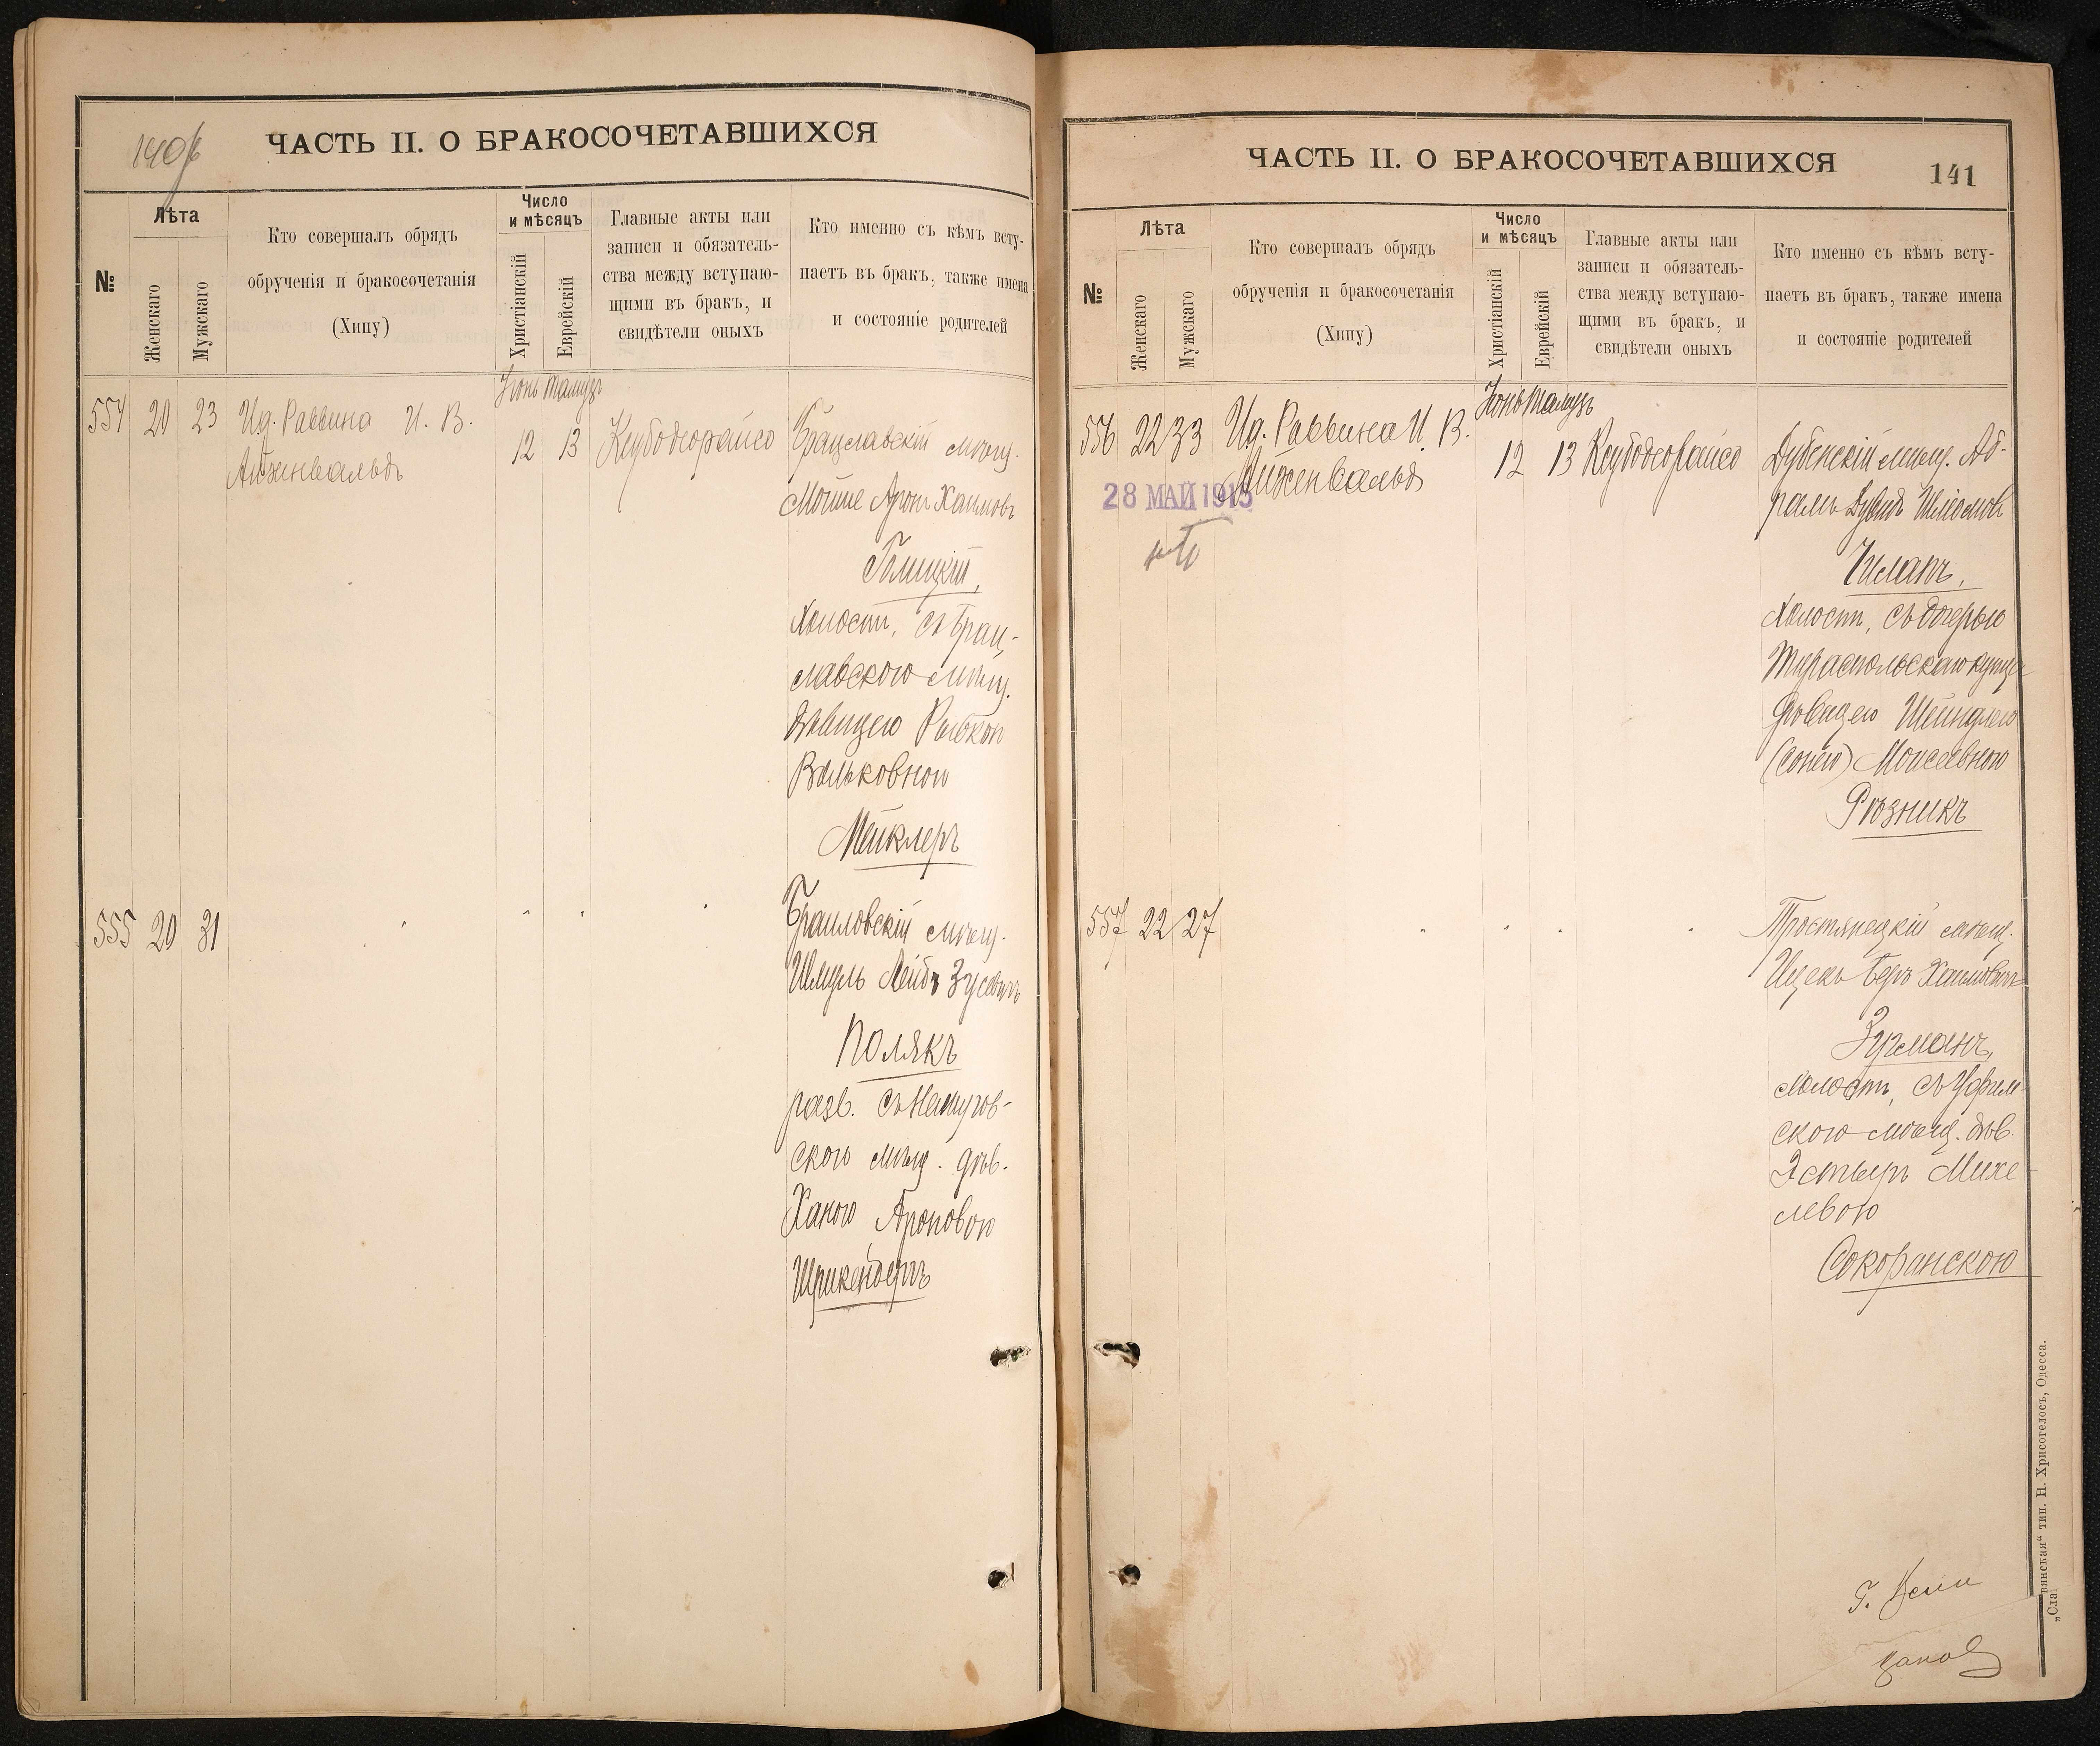 140/б
ЧАСТЬ II. О БРАКОСОЧЕТАВШИХСЯ
№
Лѣта
Женскаго
Мужскаго
Кто совершалъ обрядъ
обрученія и бракосочетанія
(Хипу)
Число
и мѣсяцъ
Христіанскій
Еврейскій
Главные акты или
записи и обязатель-
ства между вступаю-
щими въ бракъ, и
свидѣтели оныхъ
Кто именно съ кѣмъ всту-
паетъ въ бракъ, также имена
и состояніе родителей
Іюнь Тамузъ
554 20 23 Ид. Раввина И. В.
Айзенвальдъ
12 13 Кеубодеорайсо
Брацлавскій мѣщ.
Мойше Аронъ Хаимовъ
холостъ, съ Брац-
лавскою мѣщ.
дѣвицею Рывкой
Вольковной
Мейклеръ
555 20 31
Браиловскій мѣщ.
Шмуль Лейбъ Зусевъ
Полякъ
разв. съ
скою мѣщ. дѣв.
Ханою Ароновою
ЧАСТЬ II. О БРАКОСОЧЕТАВШИХСЯ
141
№
Лѣта
Женскаго
Мужскаго
Кто совершалъ обрядъ
обрученія и бракосочетанія
(Хипу)
Число
и мѣсяцъ
Христіанскій
Еврейскій
Главные акты или
записи и обязатель-
ства между вступаю-
щими въ бракъ, и
свидѣтели оныхъ
Кто именно съ кѣмъ всту-
паетъ въ бракъ, также имена
и состояніе родителей
Іюнь Тамузъ
556 22 33 Ид. Раввина И. В.
Айзенвальдъ
28 МАЙ 1915
12 13 Кеубодеорайсо
Дубенскій мѣщ. Аб-
рамъ Дувидъ Шліомовъ
холостъ, съ дочерью
Тираспольскаго купца
дѣвицею Шейндлею
(Сонею) Моисеевною
Рѣзникъ
557 22 27
Тростянецкій мѣщ.
Ицекъ Беръ Хаимовъ
Зугманъ,
холостъ, съ
скою мѣщ. дѣв.
Эстеръ Михе-
левою
Сокорянскою
„Славянская“ тип. Н. Хрисогелосъ, Одесса.